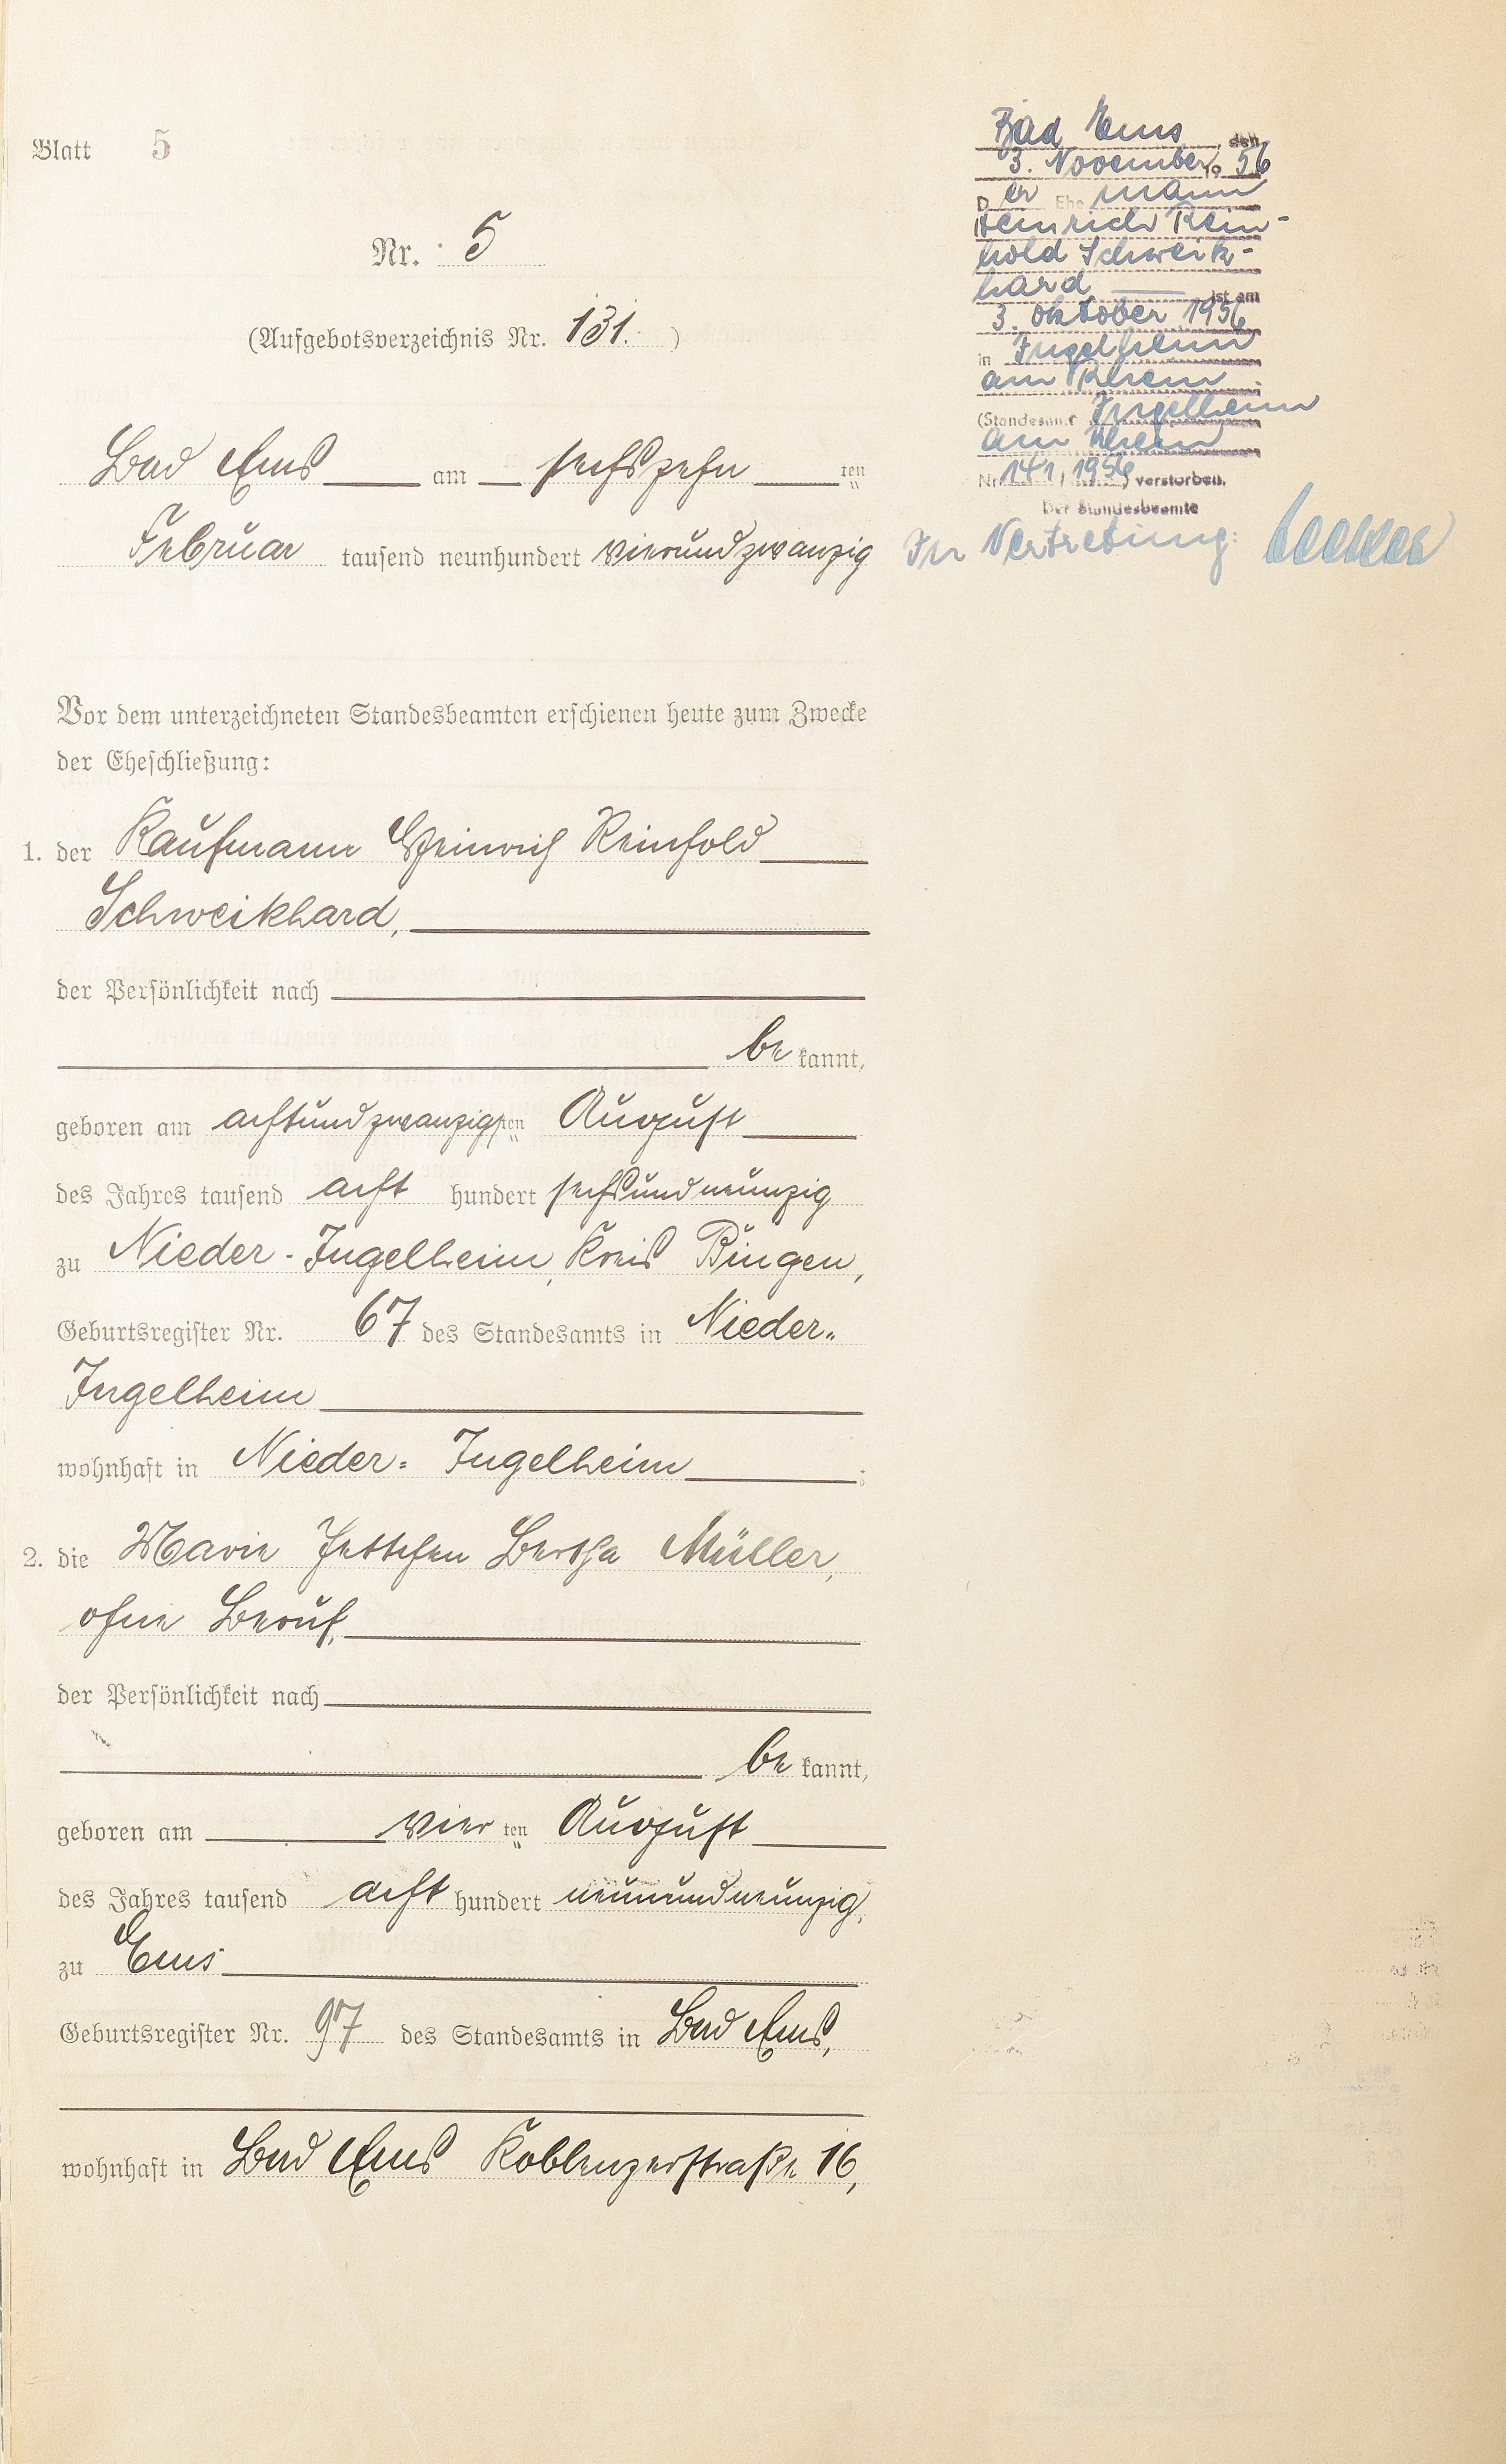 Blatt 5
Nr. 5
(Aufgebotsverzeichnis Nr. 131. )
Bad Ems am sechszehn ten
Februar tausend neunhundert vierundzwanzig
Vor dem unterzeichneten Standesbeamten erschienen heute zum Zwecke
der Eheschließung:
1. der Kaufmann Heinrich Reinhold
Schweikhard,
der Persönlichkeit nach
be kannt,
geboren am achtundzwanzigsten August
des Jahres tausend acht hundert sechsundneunzig
zu Nieder-Ingelheim, Kreis Bingen,
Geburtsregister Nr. 67 des Standesamts in Nieder-
Ingelheim
wohnhaft in Nieder-Ingelheim ;
2. die Marie Jettchen Bertha Müller,
ohne Beruf,
der Persönlichkeit nach
be kannt,
geboren am vier ten August
des Jahres tausend acht hundert neunundneunzig,
zu Ems
Geburtsregister Nr. 97 des Standesamts in Bad Ems,
wohnhaft in Bad Ems Koblenzerstraße 16,
Bad Ems, den
3. November 1956
Der Ehemann
Heinrich Rein-
hold Schweik-
hard ist am
3. Oktober 1956
in Ingelheim
am Rhein
(Standesamt Ingelheim
am Rhein
Nr. 141/1956 verstorben.
Der Standesbeamte
In Vertretung: